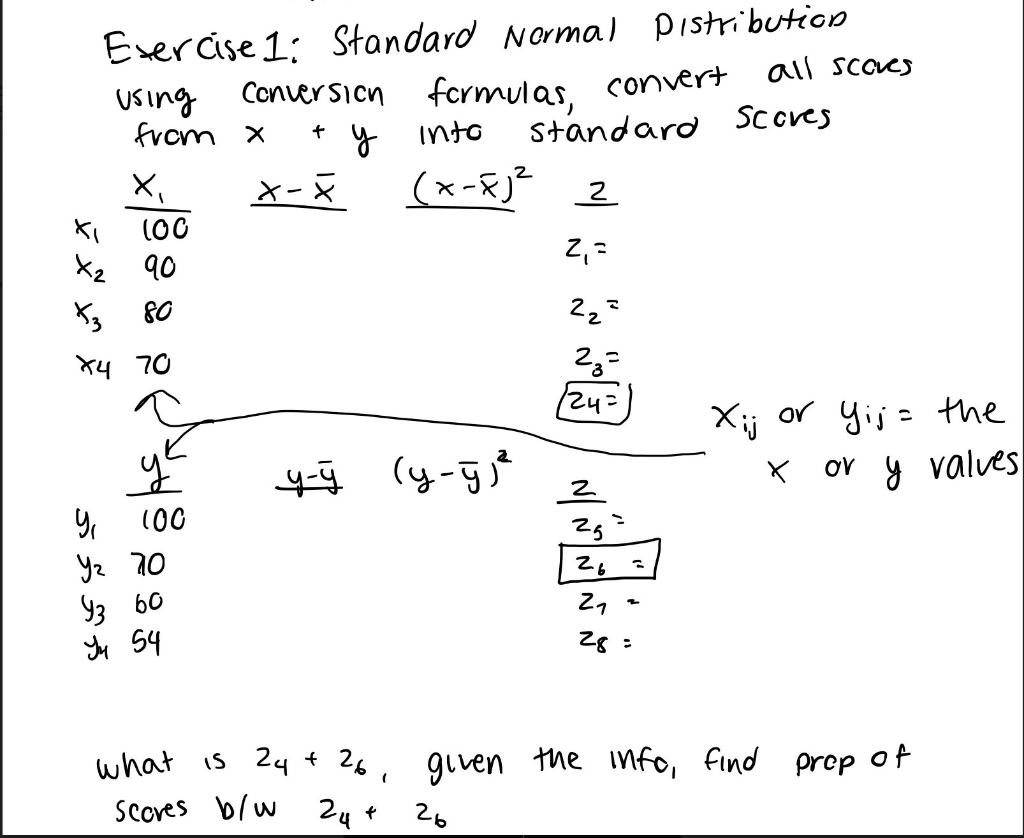 Exercise 1: Standard Normal Distribution
using conversion formulas, convert all scores
from x + y into standard scores
X₁ x-x̄ (x-x̄)² z
x₁ 100
z₁=
x₂ 90
x₃ 80 z₂=
x4 70 z₃=
z4=
Xij or yij = the
x or y values
y y-ȳ (y-ȳ)² z
y₁ 100 z₅=
y₂ 70 z₆ =
y₃ 60 z₇ =
y₄ 54 z₈ =
what is z₄ + z₆, given the info, find prop of
scores b/w z₄ + z₆